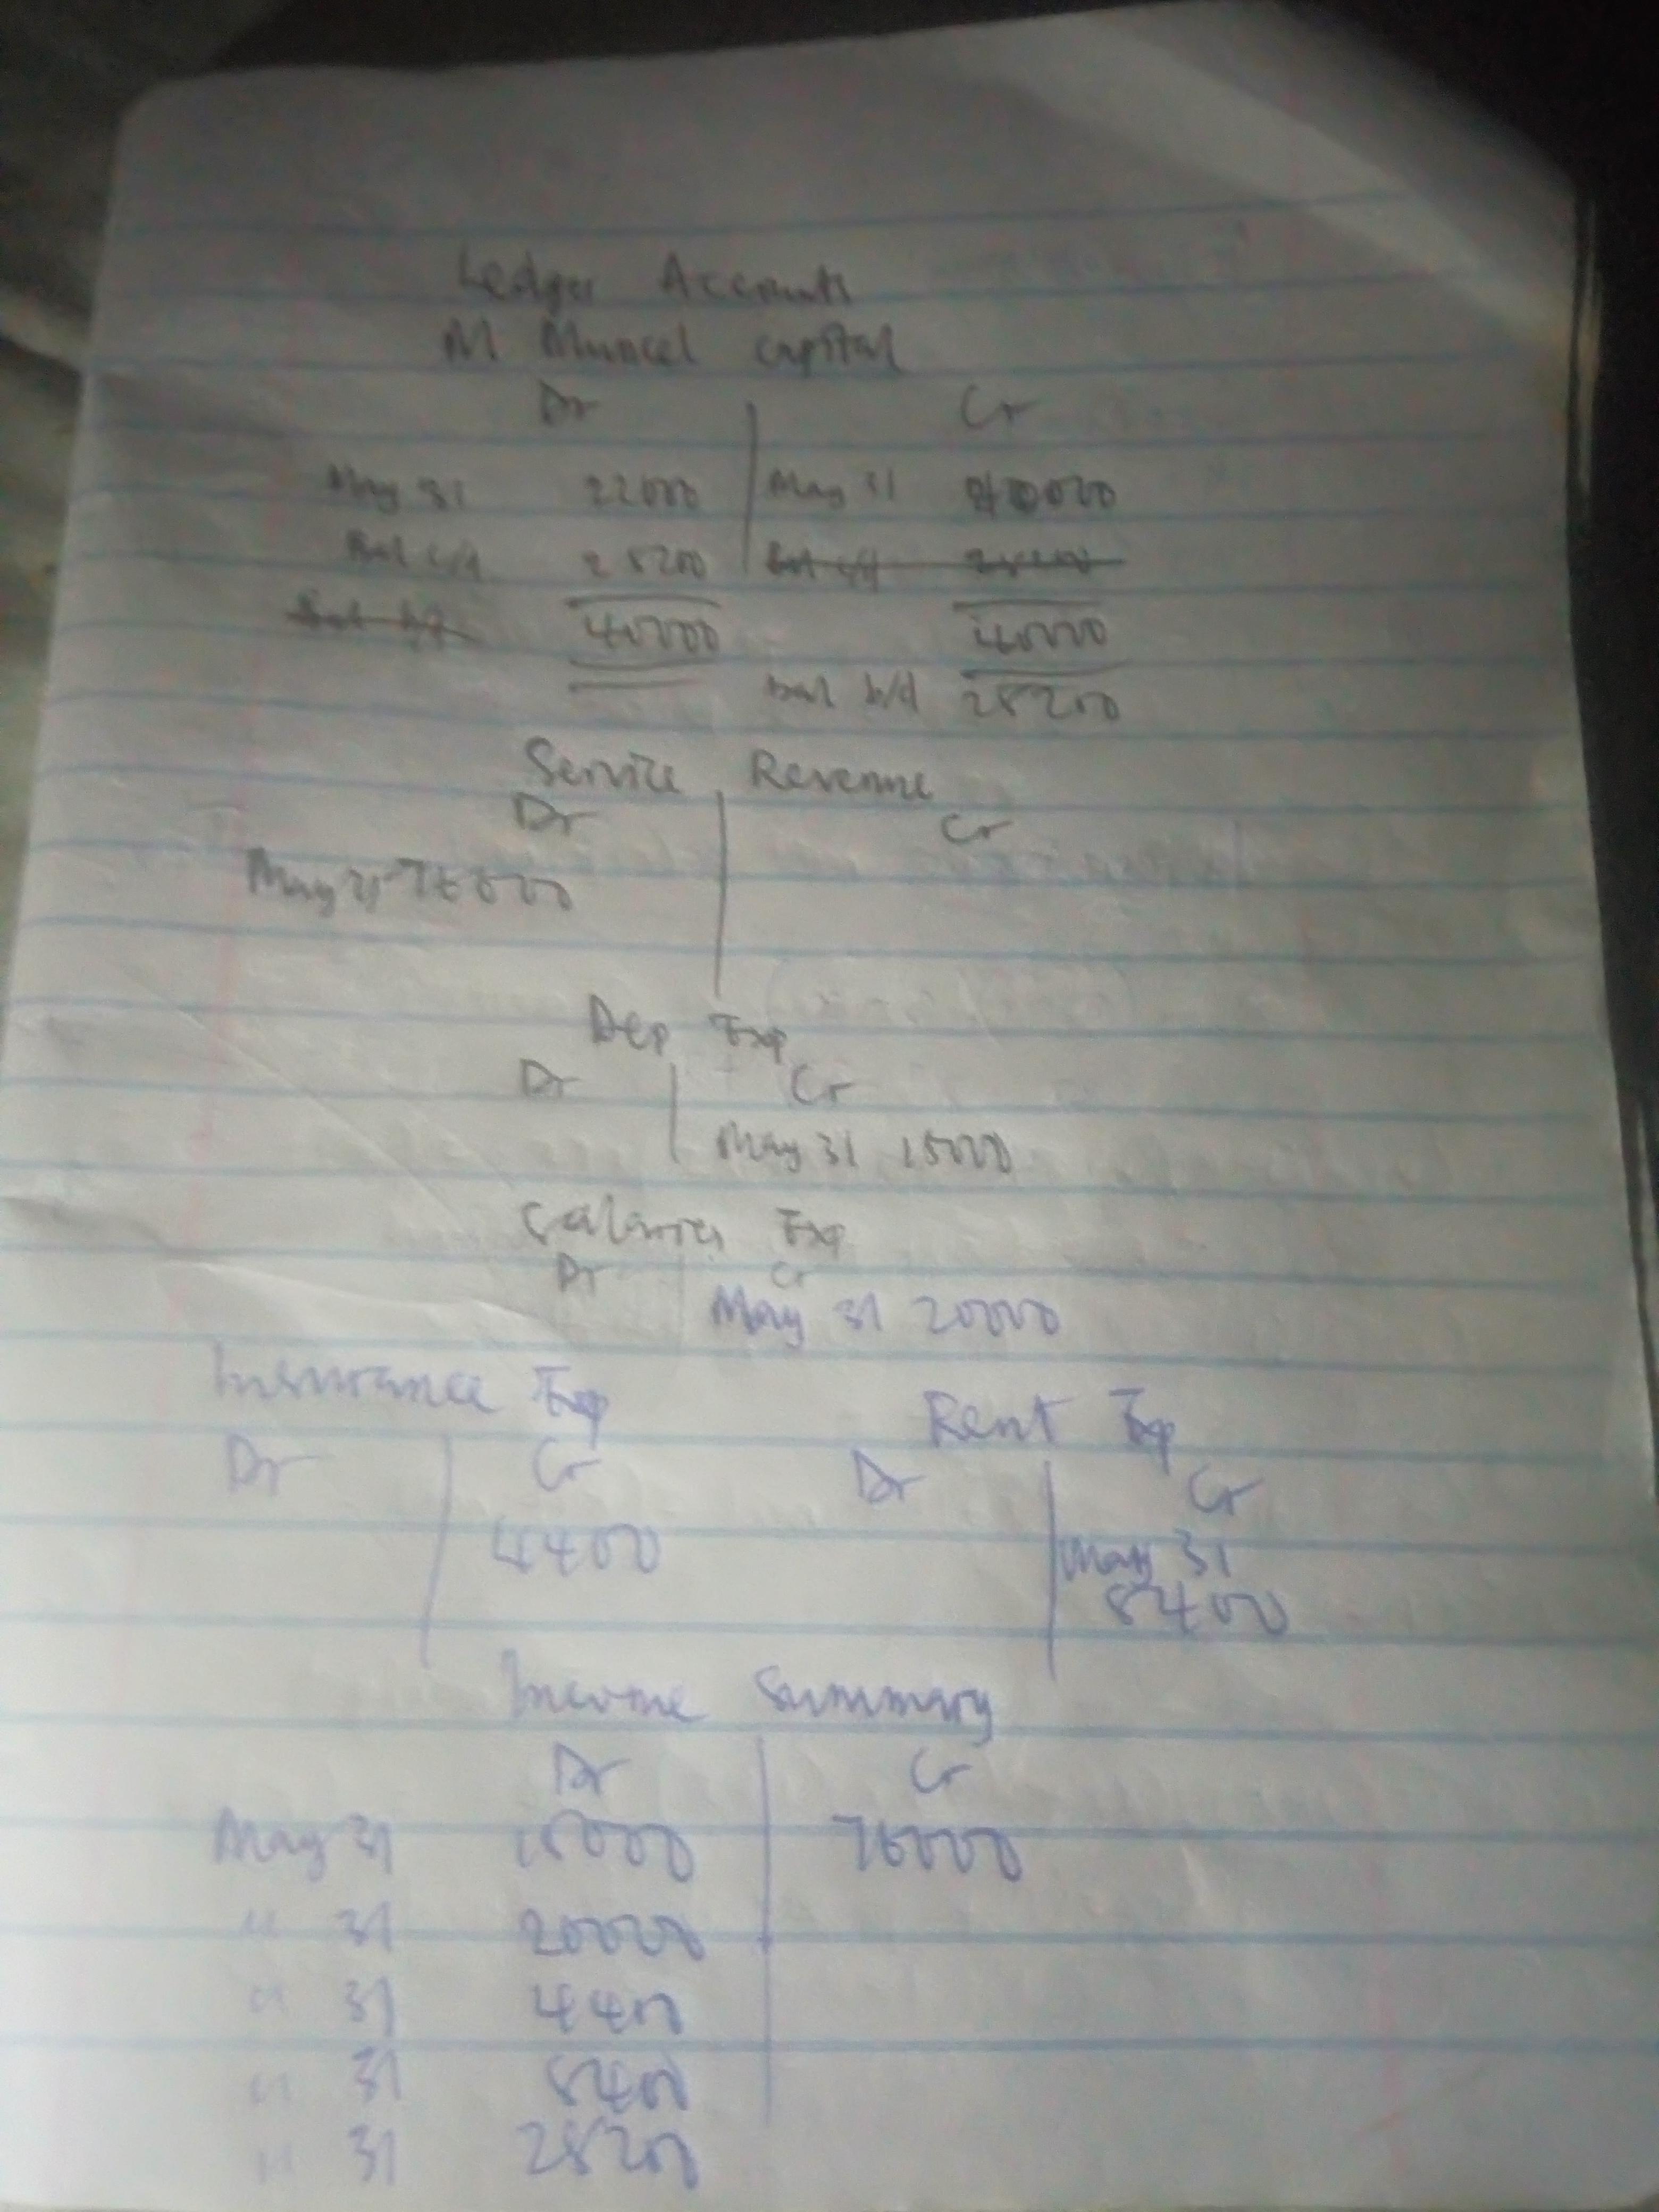 Ledger Accounts
M Muncel capital
Dr Cr
May 31 22000 May 31 40000
Bal c/d 28200
40000 40000
bal b/d 28200
Service Revenue
Dr Cr
May 31 76000
Dep Exp
Dr Cr
May 31 15000
Salaries Exp
Dr Cr
May 31 20000
Insurance Exp Rent Exp
Dr Cr Dr Cr
4400 May 31
8400
Income Summary
Dr Cr
May 31 15000 76000
" 31 20000
" 31 4400
" 31 8400
" 31 28200